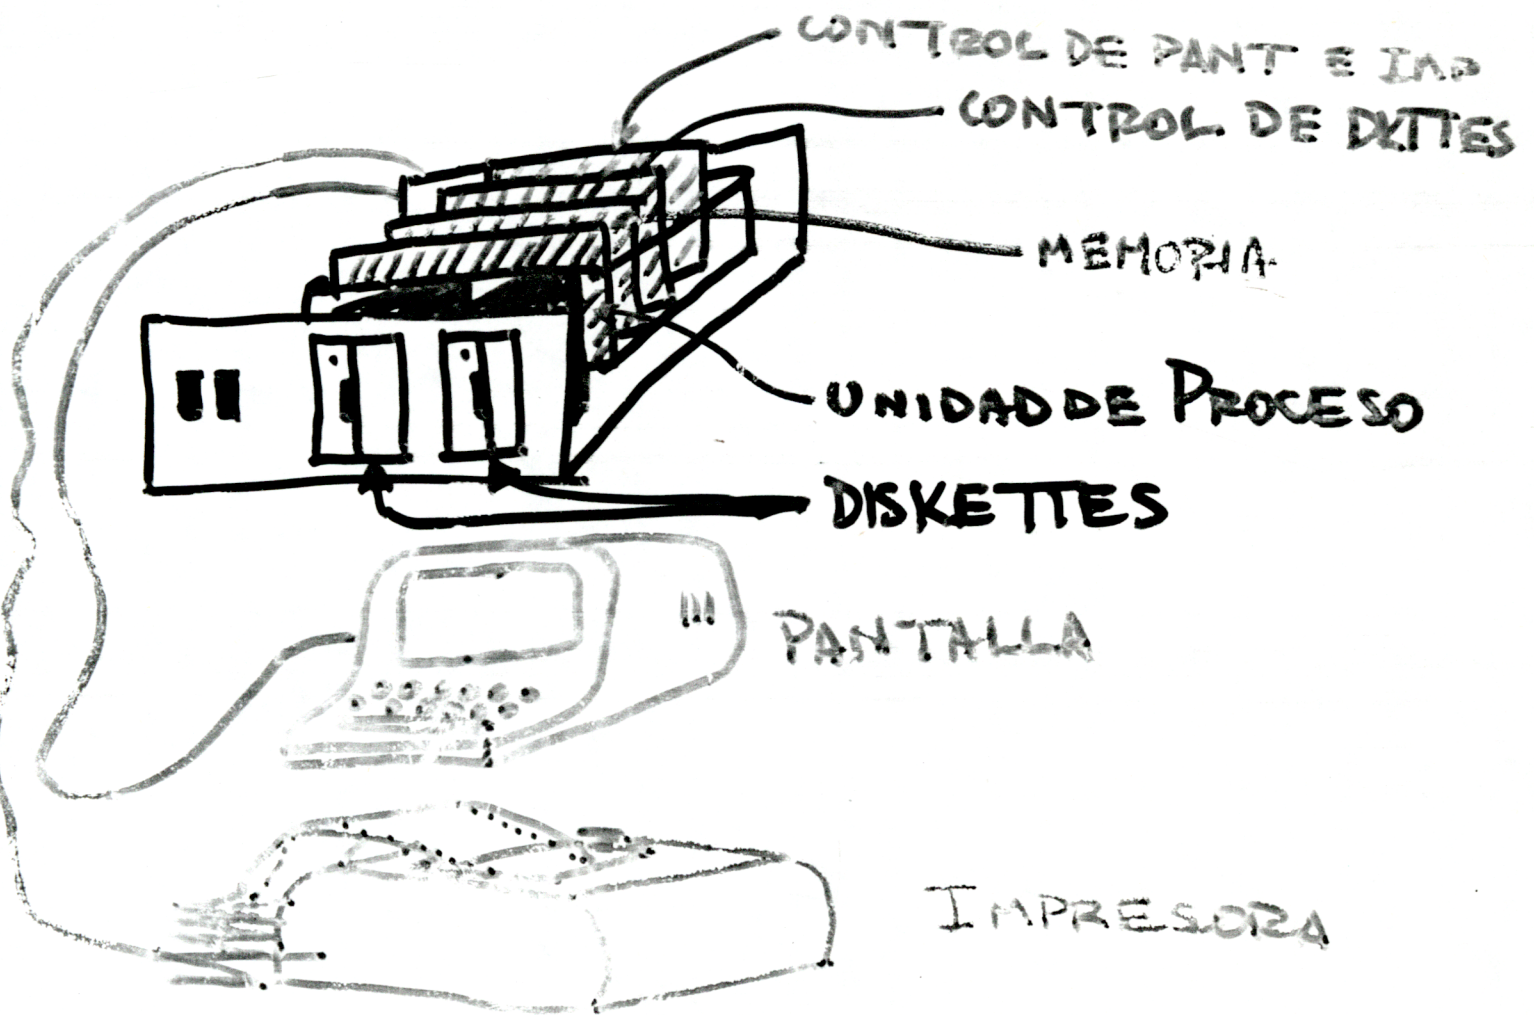 CONTROL DE PANT E IMP
CONTROL DE DKTTES
MEMORIA
UNIDAD DE PROCESO
DISKETTES
PANTALLA
IMPRESORA